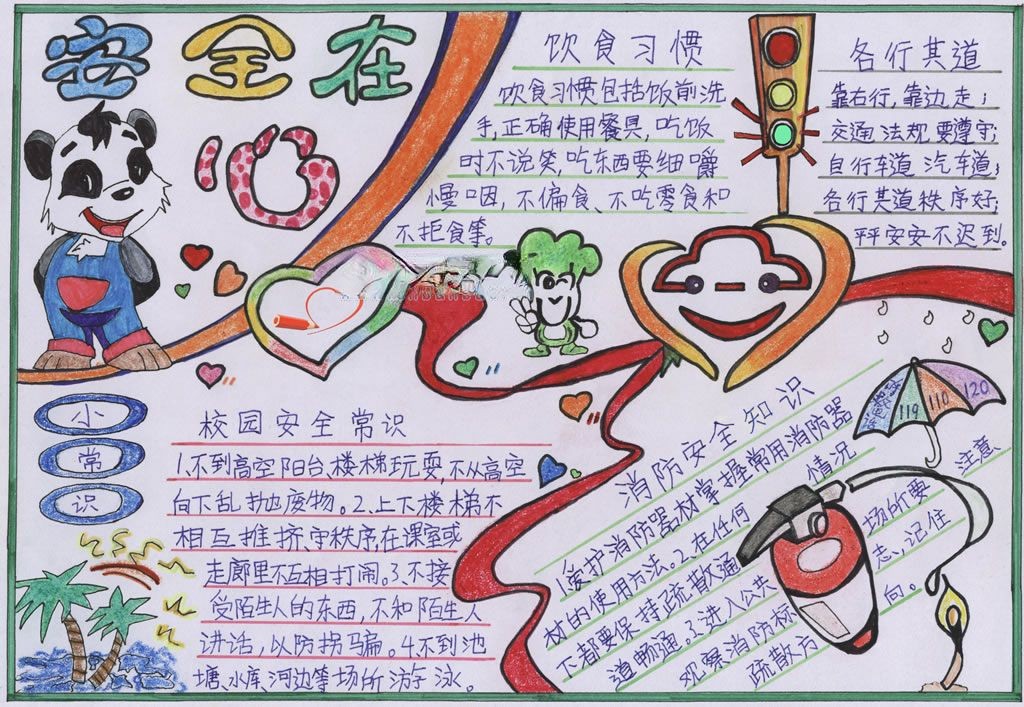 安全在
心
饮食习惯
饮食习惯包括饭前洗
手,正确使用餐具,吃饭
时不说笑,吃东西要细嚼
慢咽,不偏食、不吃零食和
不拒食等。
各行其道
靠右行,靠边走;
交通法规要遵守;
自行车道 汽车道;
各行其道秩序好;
平平安安不迟到。
小
常
识
校园安全常识
1.不到高空阳台、楼梯玩耍,不从高空
向下乱抛废物。2.上下楼梯不
相互推挤、守秩序,在课室或
走廊里不互相打闹。3.不接
受陌生人的东西,不和陌生人
讲话,以防拐骗。4.不到池
塘、水库、河边等场所游泳。
消防安全知识
1.爱护消防器材掌握常用消防器
材的使用方法。2.在任何情况
下都要保持疏散通
道畅通。3.进入公共场所要注意
观察消防标志、记住
疏散方向。
119
110
120